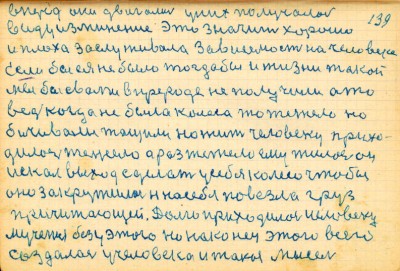 вперед они двигали у них получалось 139
видуизминение это значит хорошо
и плоха заслуживала зависемост на человека
если бы ея не было тогда бы и жизни такой
мы бы свами в природе не получили а то
вед когда не была колеса то тежело но
бичивали тащили но жит человеку прихо-
дилося тежело а раз тежело ему жилося он
искал выход сделат у себя колесо чтобы
оно закрутилося на себя повезла груз
причитающей. Долго приходилося человеку
мучется безу этого но наконец этого всего
создалося у человека и такая мысел